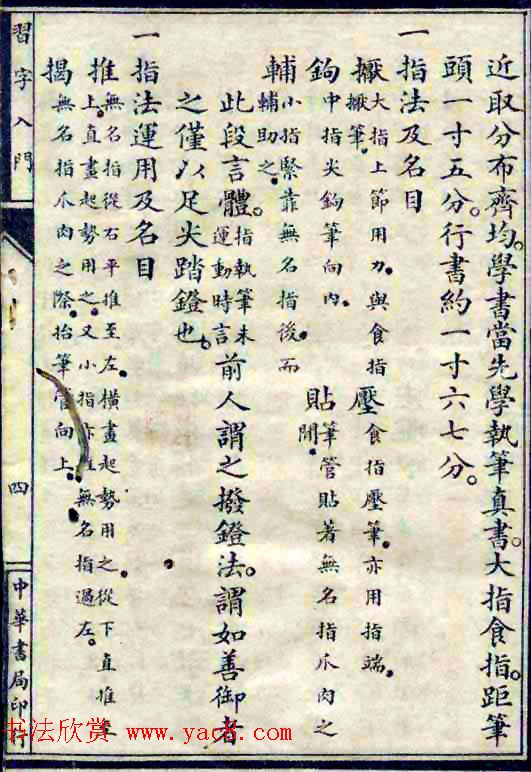 近取分布齊均。學書當先學執筆真書。大指食指。距筆
頭一寸五分。行書約一寸六七分。
一指法及名目
擫大指上節用力。與食指
擫筆。
壓食指壓筆。亦用指端。
鉤中指尖鉤筆向內。
貼筆管貼著無名指爪肉之
間。
輔小指緊靠無名指後。而
輔助之。
此段言體。指執筆未
運動時言
前人謂之撥鐙法。謂如善御者
之僅以足尖踏鐙也。
一指法運用及名目
推無名指從右平推至左。橫畫起勢用之。從下直推至
上。直畫起勢用之。又小指亦無名指過左。
揭無名指爪肉之際。抬筆管向上。
習字入門
四
中華書局印行
书法欣赏 www.yac8.com